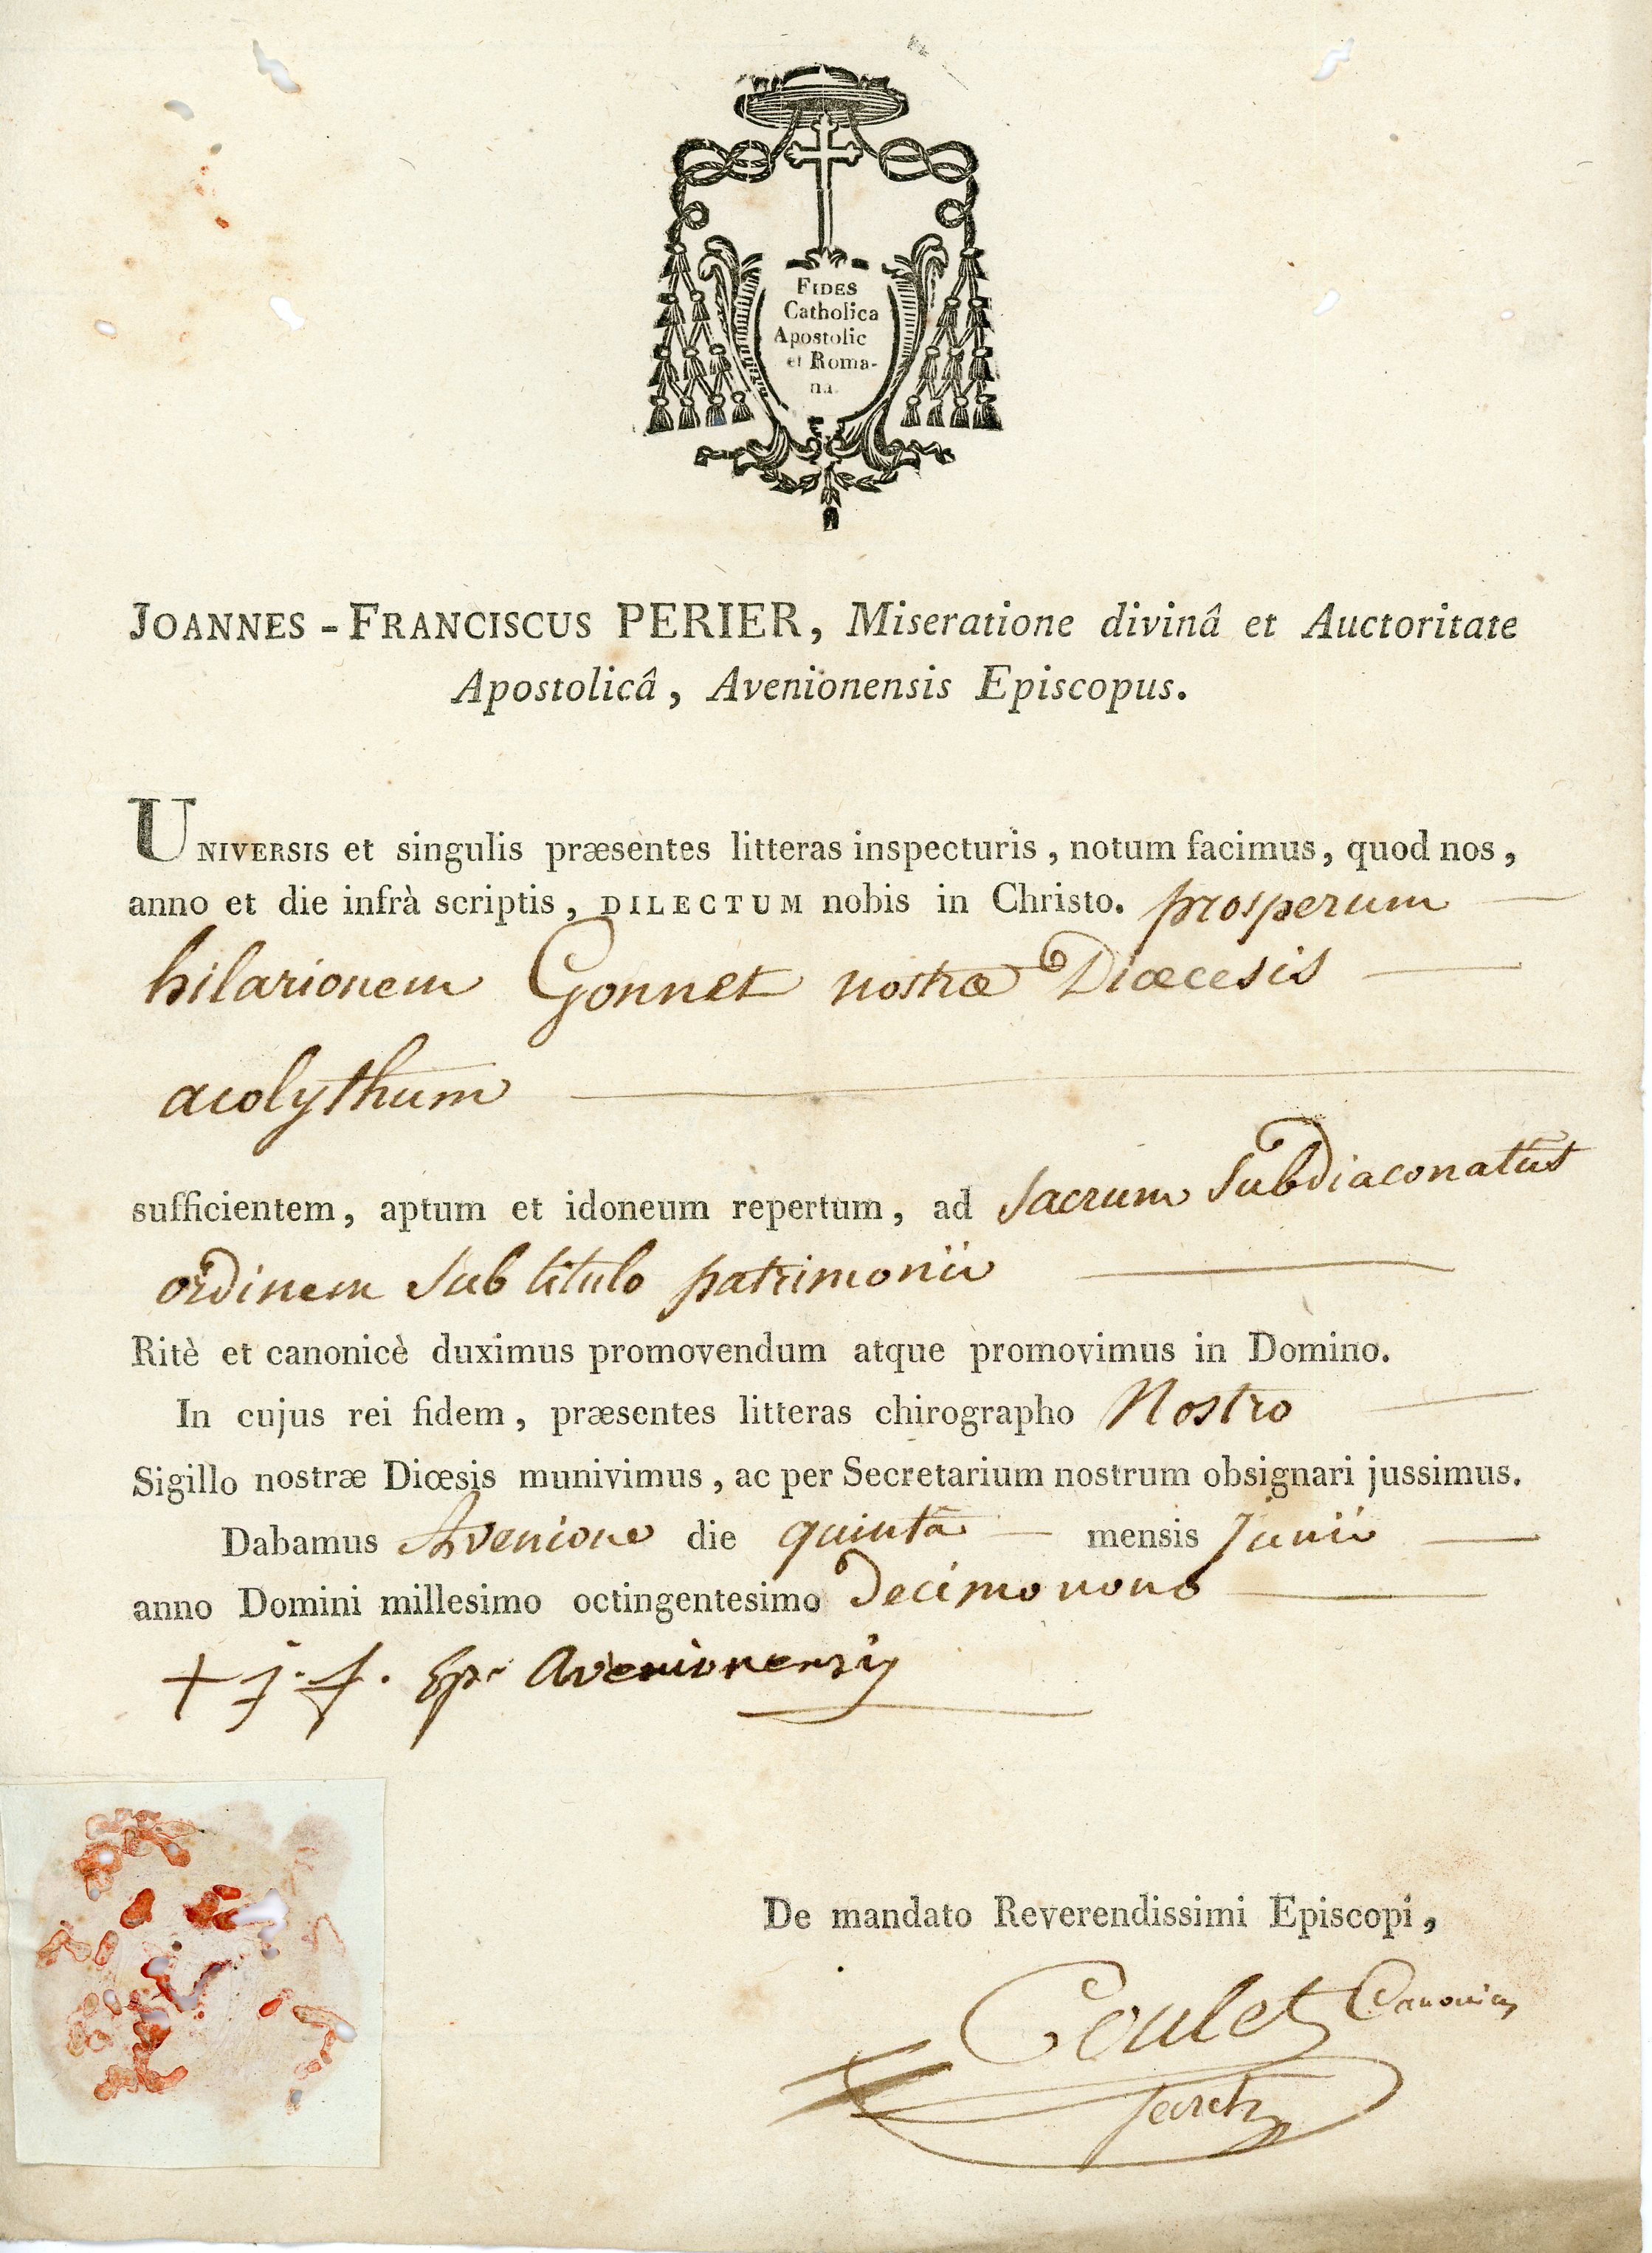 FIDES
Catholica
Apostolic
et Roma-
na.
JOANNES - FRANCISCUS PERIER, Miseratione divinâ et Auctoritate
Apostolicâ, Avenionensis Episcopus.
UNIVERSIS et singulis præsentes litteras inspecturis, notum facimus, quod nos,
anno et die infrà scriptis, DILECTUM nobis in Christo. prosperum
hilarionem Gonnet nostræ Diœcesis
acolythum
sufficientem, aptum et idoneum repertum, ad sacrum subdiaconatûs
ordinem sub titulo patrimonii
Ritè et canonicè duximus promovendum atque promovimus in Domino.
In cujus rei fidem, præsentes litteras chirographo Nostro
Sigillo nostræ Diœsis munivimus, ac per Secretarium nostrum obsignari jussimus.
Dabamus Avenione die quintâ mensis junii
anno Domini millesimo octingentesimo Decimo nono
+ j. f. Eps Avenionensis
De mandato Reverendissimi Episcopi,
Coulet Canonicus